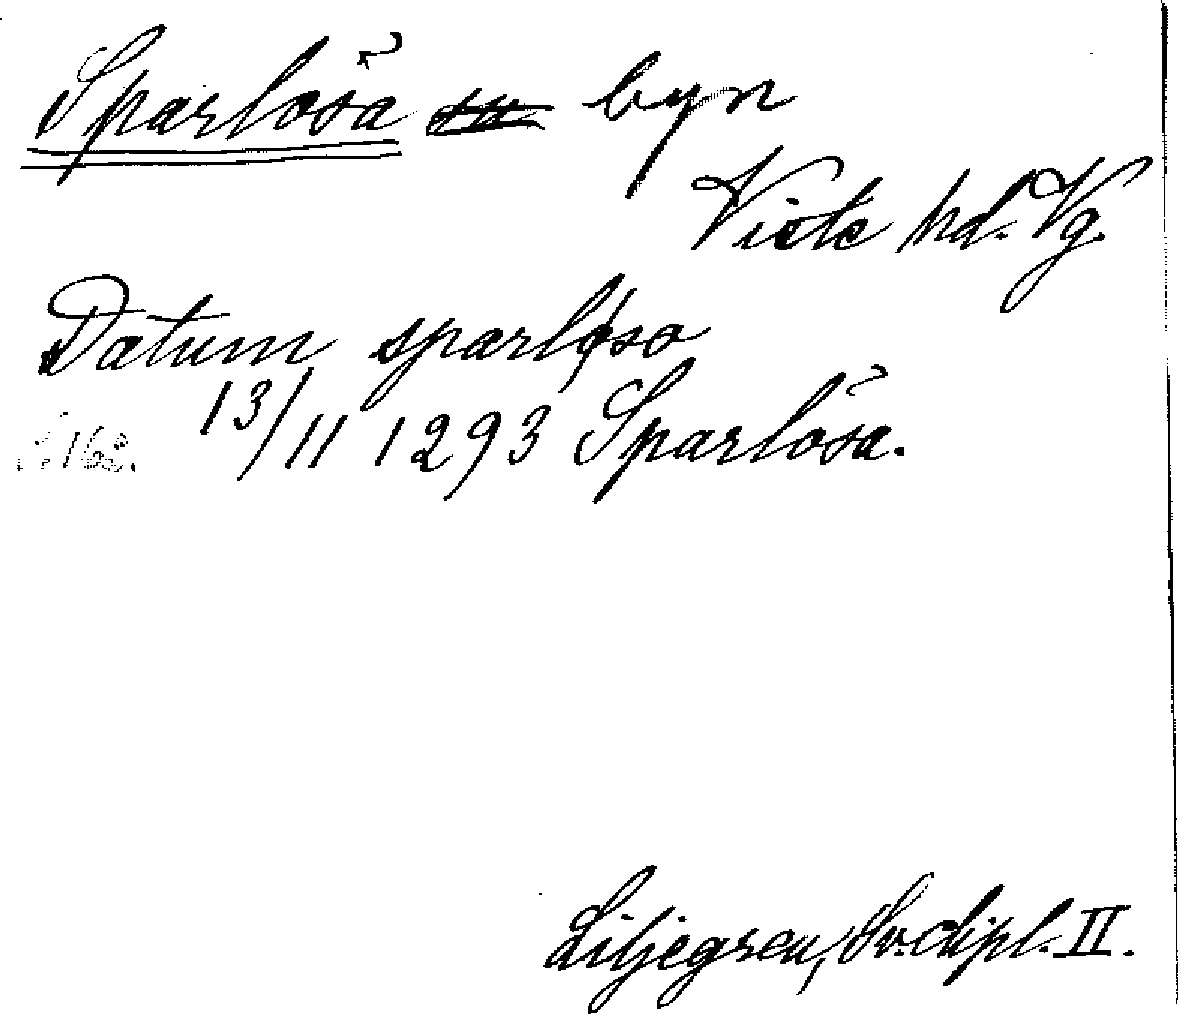 Sparlösa byn
Viste hd. Vg.
Datum sparløso
13/11 1293 Sparlösa.
Liljegren, Sv. dipl. II.